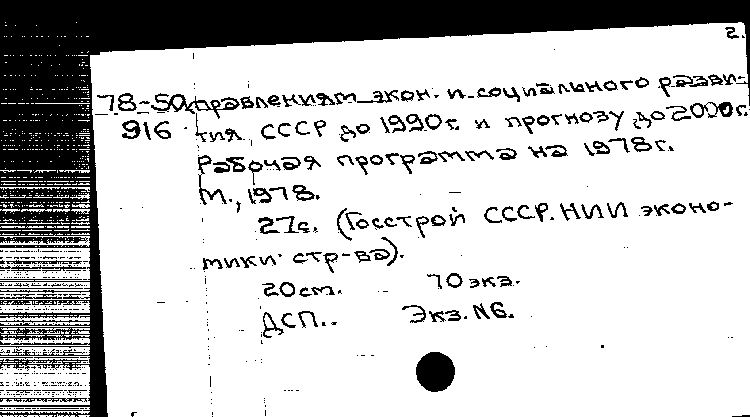 2.
78-50 правлениям экон. и социального разви-
916 тия СССР до 1990г. и прогнозу до 2000г.
Рабочая программа на 1978г.
М., 1978.
27с. (Госстрой СССР. НИИ эконо-
мики стр-ва).
20см. 70 экз.
ДСП. Экз. N6.